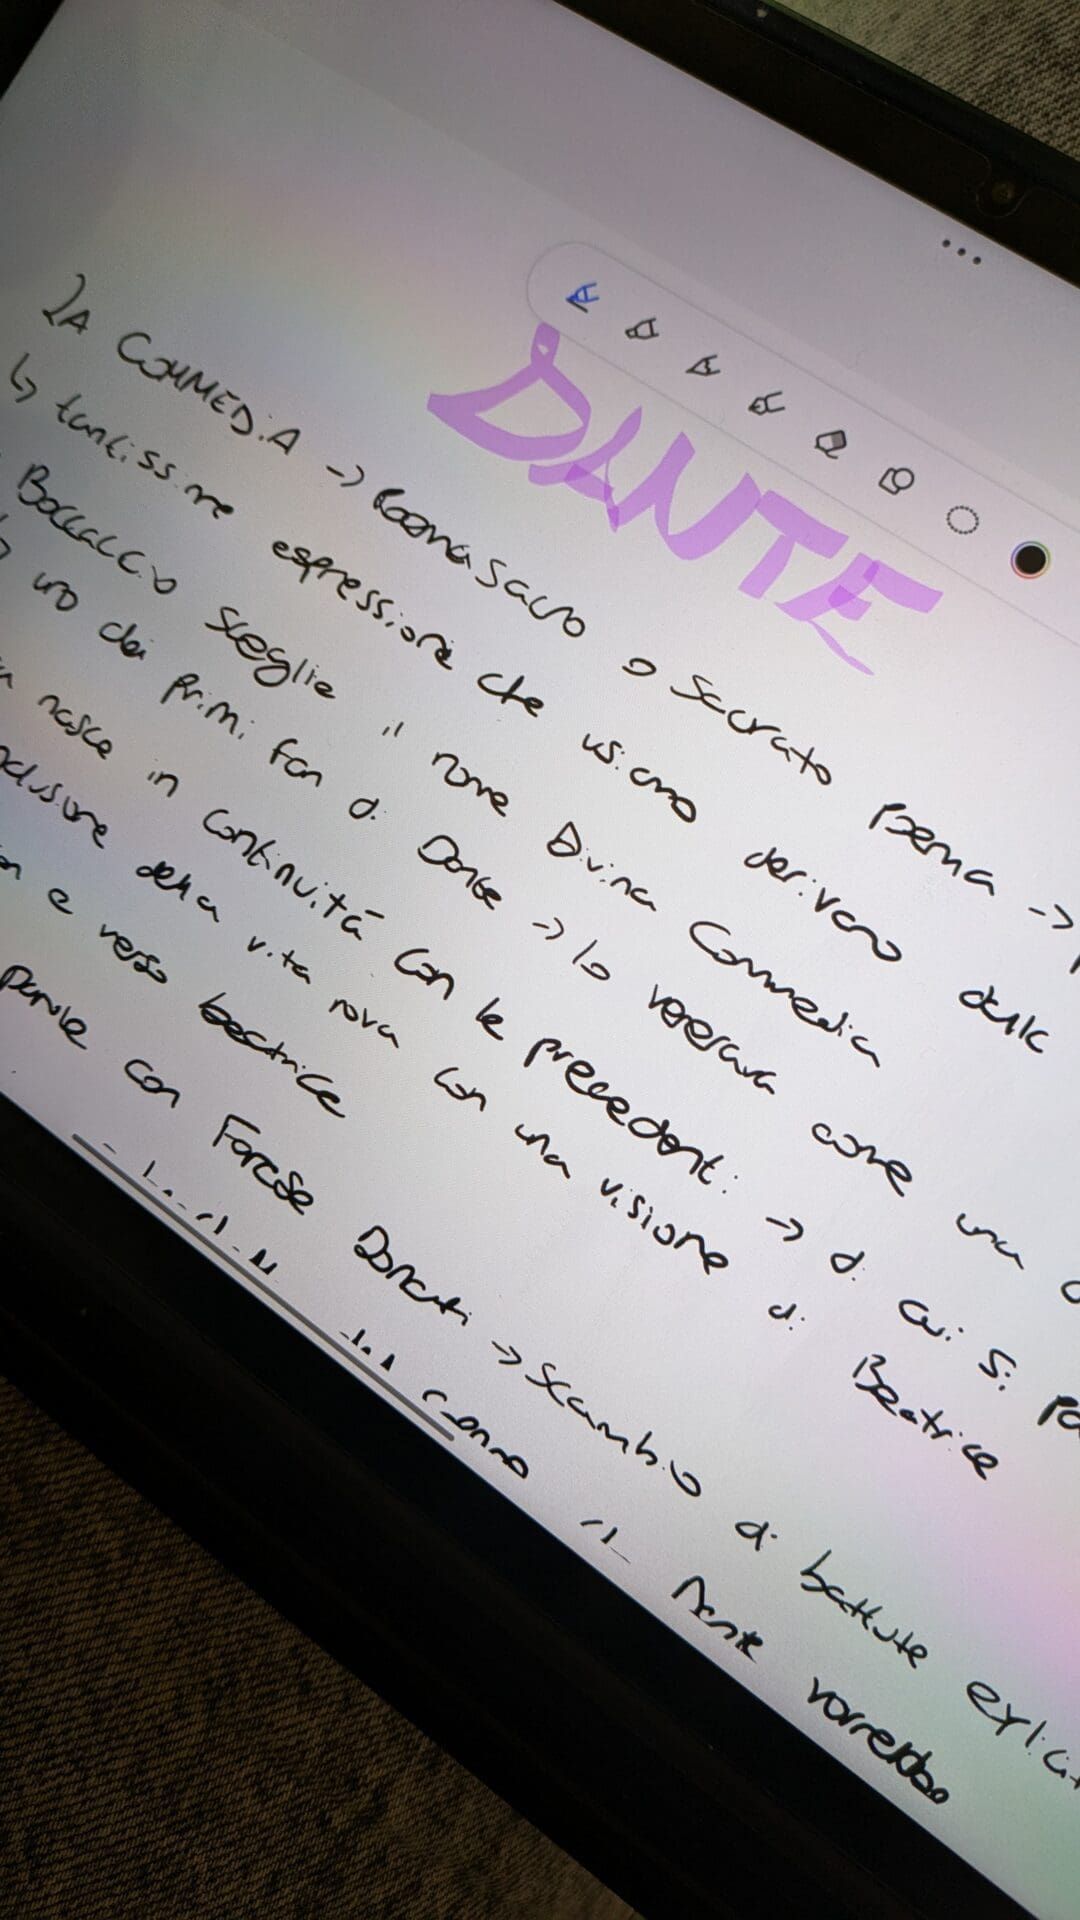 DANTE
LA COMMEDIA -> Poema sacro o sacrato poema ->
↳ tantissime espressioni che usiamo derivano dalle
Boccaccio sceglie il nome Divina Commedia
uno dei primi fan di Dante -> lo venerava come una
nasce in continuità con le precedenti -> di cui si
della vita nova con una visione di Beatrice
e verso beatrice
parole con Forese Donati -> scambio di battute
Dante vorrebbe